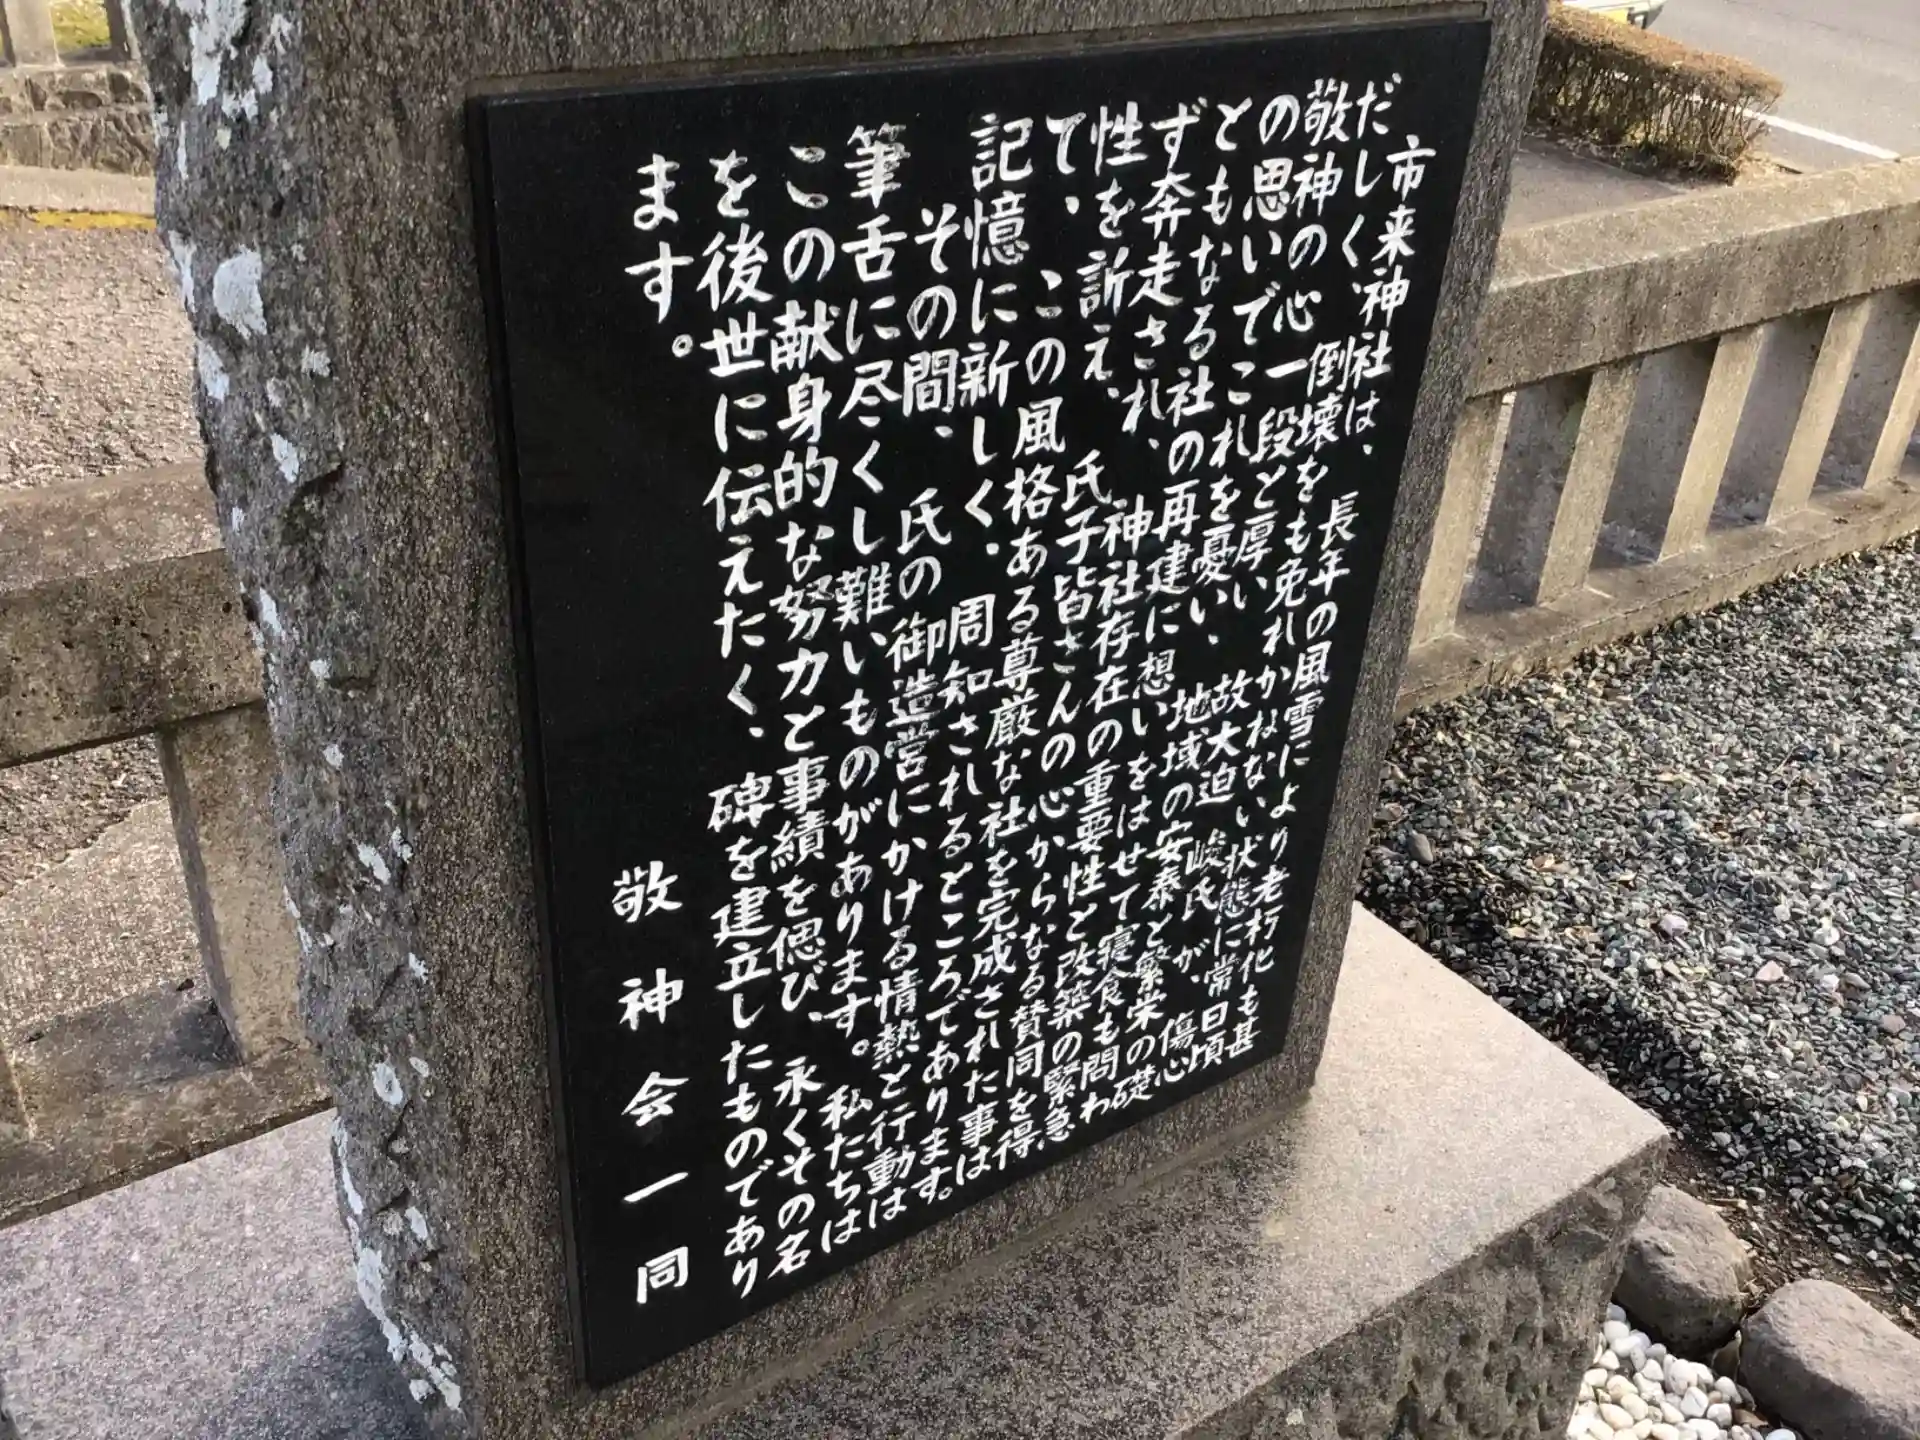 市来神社は、長年の風雪により老朽化も甚
だしく、倒壊をも免れかねない状態に常日頃
敬神の心一段と厚い故大迫峻氏が、傷心
の思いでこれを憂い、地域の安泰と繁栄の礎
ともなる社の再建に想いをはせて寝食も問わ
ず奔走され、神社存在の重要性と改築の緊急
性を訴え、氏子皆さんの心からなる賛同を得
て、この風格ある尊厳な社を完成された事は
記憶に新しく、周知されるところであります。
その間、氏の御造営にかける情熱と行動は
筆舌に尽くし難いものがあります。私たちは
この献身的な努力と事績を偲び、永くその名
を後世に伝えたく、碑を建立したものであり
ます。
敬神会一同